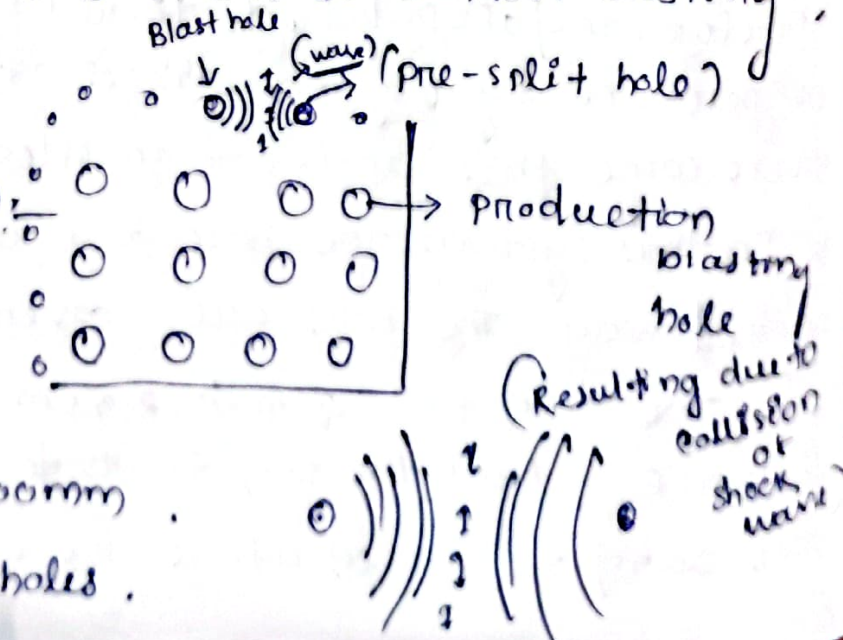 Blast hole
(wave)
(pre-split hole)
production
blasting
hole
(Resulting due to
collision
of
shock
wave)
holes.